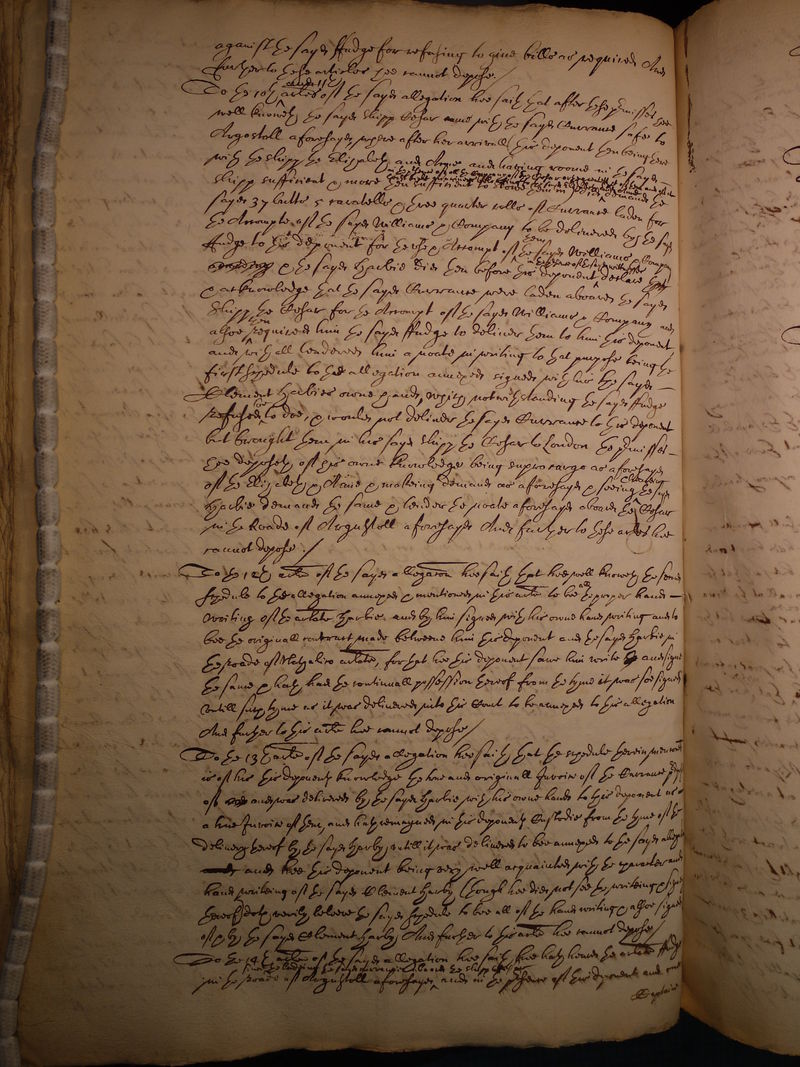 against the sayd ffudge for refusing to give bills as required And
further to these articles hee cannot depose /
To the 10th and 11th articles of the sayd allegation hee saith that after the premisses hee
well knoweth the sayd shipp Cesar came with the sayd Currans safe to
Argostoll aforesayd where after her arrivall this deponent then being there
with the shipp the Elizabeth and Anne and having roome in the sayd
shipp sufficient & more then sufficient to demanded the
sayd 37 butts 5 caratells & three quarter rolls of Currans laden for
the Accompt of the sayd Williams & Company to be delivered by the sayd
ffudge to this deponent for the use & Accompt of the sayd Williams & Company
& the sayd Harbie did then before this deponent declare
& acknowledge that the sayd Currans were laden aboard the sayd
shipp the Cesar for the Accompt of the sayd Williams & Company and
alsoe then required him the sayd ffudge to deliver them to him this deponent
and with all tendered him a noate in writing to that purpose being the
first schedule to the allegation annexed signed with him the sayd
Clement Harbies owne hand, notwithstanding the sayd ffudge
refused soe to doe, & would not deliver the sayd Currans to this deponent
but brought them in his sayd shipp the Cesar to London the premisses
hee deposeth of his owne knowledge being supra cargo as aforesayd
of the Elizabeth & Anne & making demand as aforesayd & seeing the sayd Clement
Harbie demand the same & tender the noate aforesayd aboard the Cesar
in the Roade of Argustoll aforesayd And further to these articles hee
cannot depose /
To the 12th article of the sayd allegation hee saith that hee well knoweth the second
schedule to the allegation annexed & mentioned in this article to be all the proper hand
writing of the articulate Harbie, and by him signed with his owne hand writing and to
bee the originall contract made betweene him this deponent and the sayd Harbie in
the roade of articulate, for that hee this deponent saw him write and signe
the same & hath had the continuall possession thereof from the tyme it was soe signed
untill such tyme as it was delivered into this Court to be annexed to this allegation
And further to this article hee cannot depose /
To the 13th article of the sayd allegation hee saith that the schedule therein mentioned
is of his this deponents knowledge the true and originall Invoice of the Currans
of and was delivered by the sayd Harbie with his owne hands to this deponent as
a true Invoice of them, and hath remayned in this deponents Custodie from the tyme of the
delivery thereof by the sayd Harby, untill it was delivered to bee annexed to the sayd allegation
and hee this deponent being very well acquainted with the character and
hand writeing of the sayd Clement Harby though hee did not see the writeing & signing
thereof doth verily beleeve the sayd schedule to bee all of the hand writing & alsoe signed
of & by the sayd Clement Harby And further to this article hee cannot depose /
To the 14th article of the sayd allegation hee saith that hee hath heard the articulate ffudge
in the roade of Argustoll aforesayd, and in the presence of this deponent and
Captaine